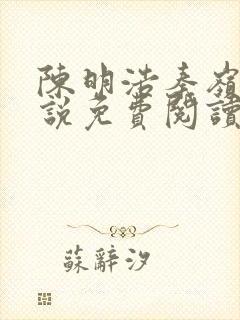 陳明浩秦嶺
說免費閱讀
蘇辭汐